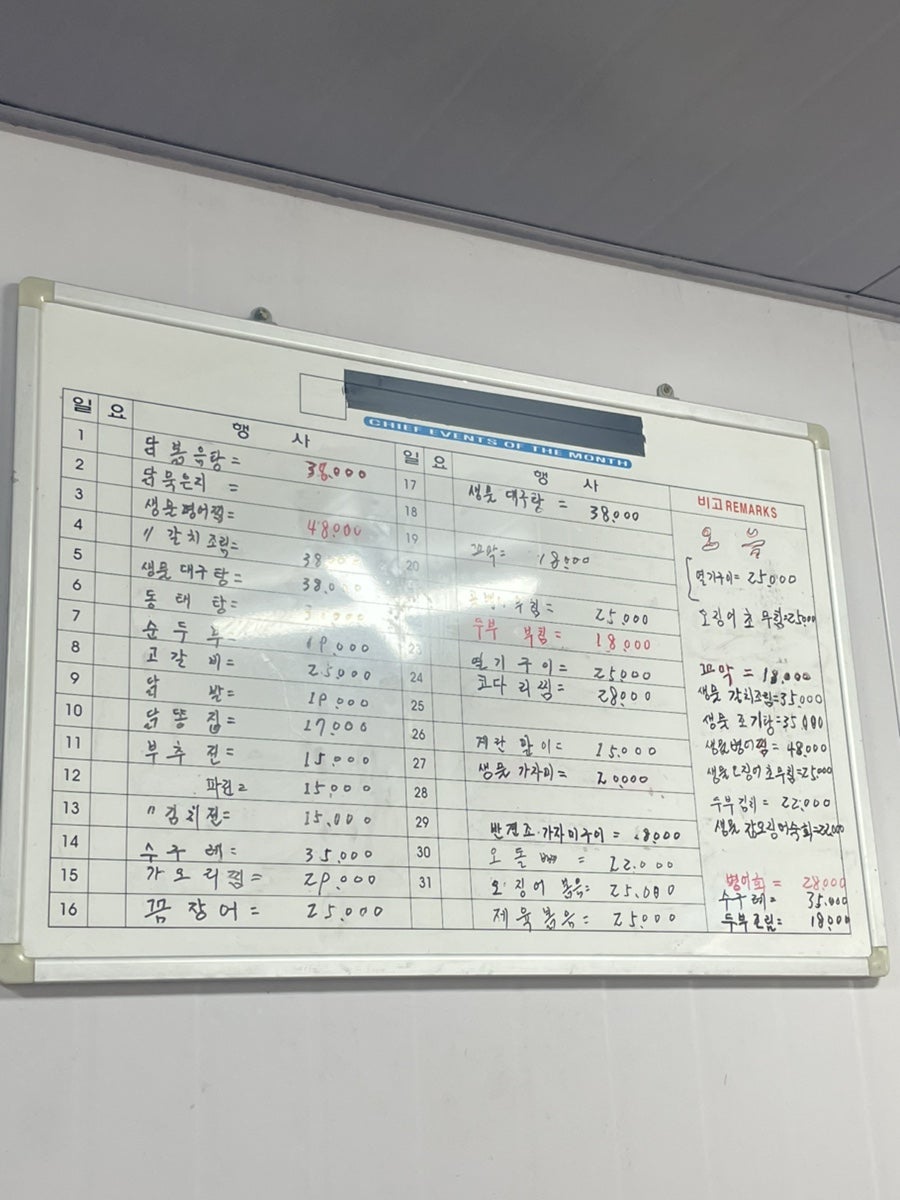 CHIEF EVENTS OF THE MONTH
일 요 행 사
1 닭볶음탕= 38.000
2 닭묵은지 =
3 생물병어찜= 48.000
4 〃갈치조림= 38.000
5 생물대구탕= 38.000
6 동태탕=
7 순두부= 19.000
8 고갈비= 25.000
9 닭발= 19.000
10 닭똥집= 17.000
11 부추전= 15.000
12 파전= 15.000
13 〃김치전= 15.000
14 수구레= 35.000
15 가오리찜= 29.000
16 꼼장어= 25.000
일 요 행 사
17 생물대구탕 = 38.000
18
19 꼬막= 18.000
20
무침= 25.000
두부 부침= 18.000
23 열기구이= 25.000
24 코다리찜= 28.000
25
26 계란말이= 15.000
27 생물가자미= 20000
28
29 반건조·가자미구이=
30 오돌뼈 = 22.000
31 오·징어볶음= 25.000
제육볶음= 25.000
비고 REMARKS
오늘
열기구이= 25.000
오징어초무침=25.000
꼬막 = 18.000
생물갈치조림=35.000
생물조기탕=35.000
생물병어찜=48.000
생물오징어초무침=25.000
두부김치= 22.000
생물갑오징어숙회=22.000
병어회= 28.000
수구레= 35.000
두부조림= 18.000